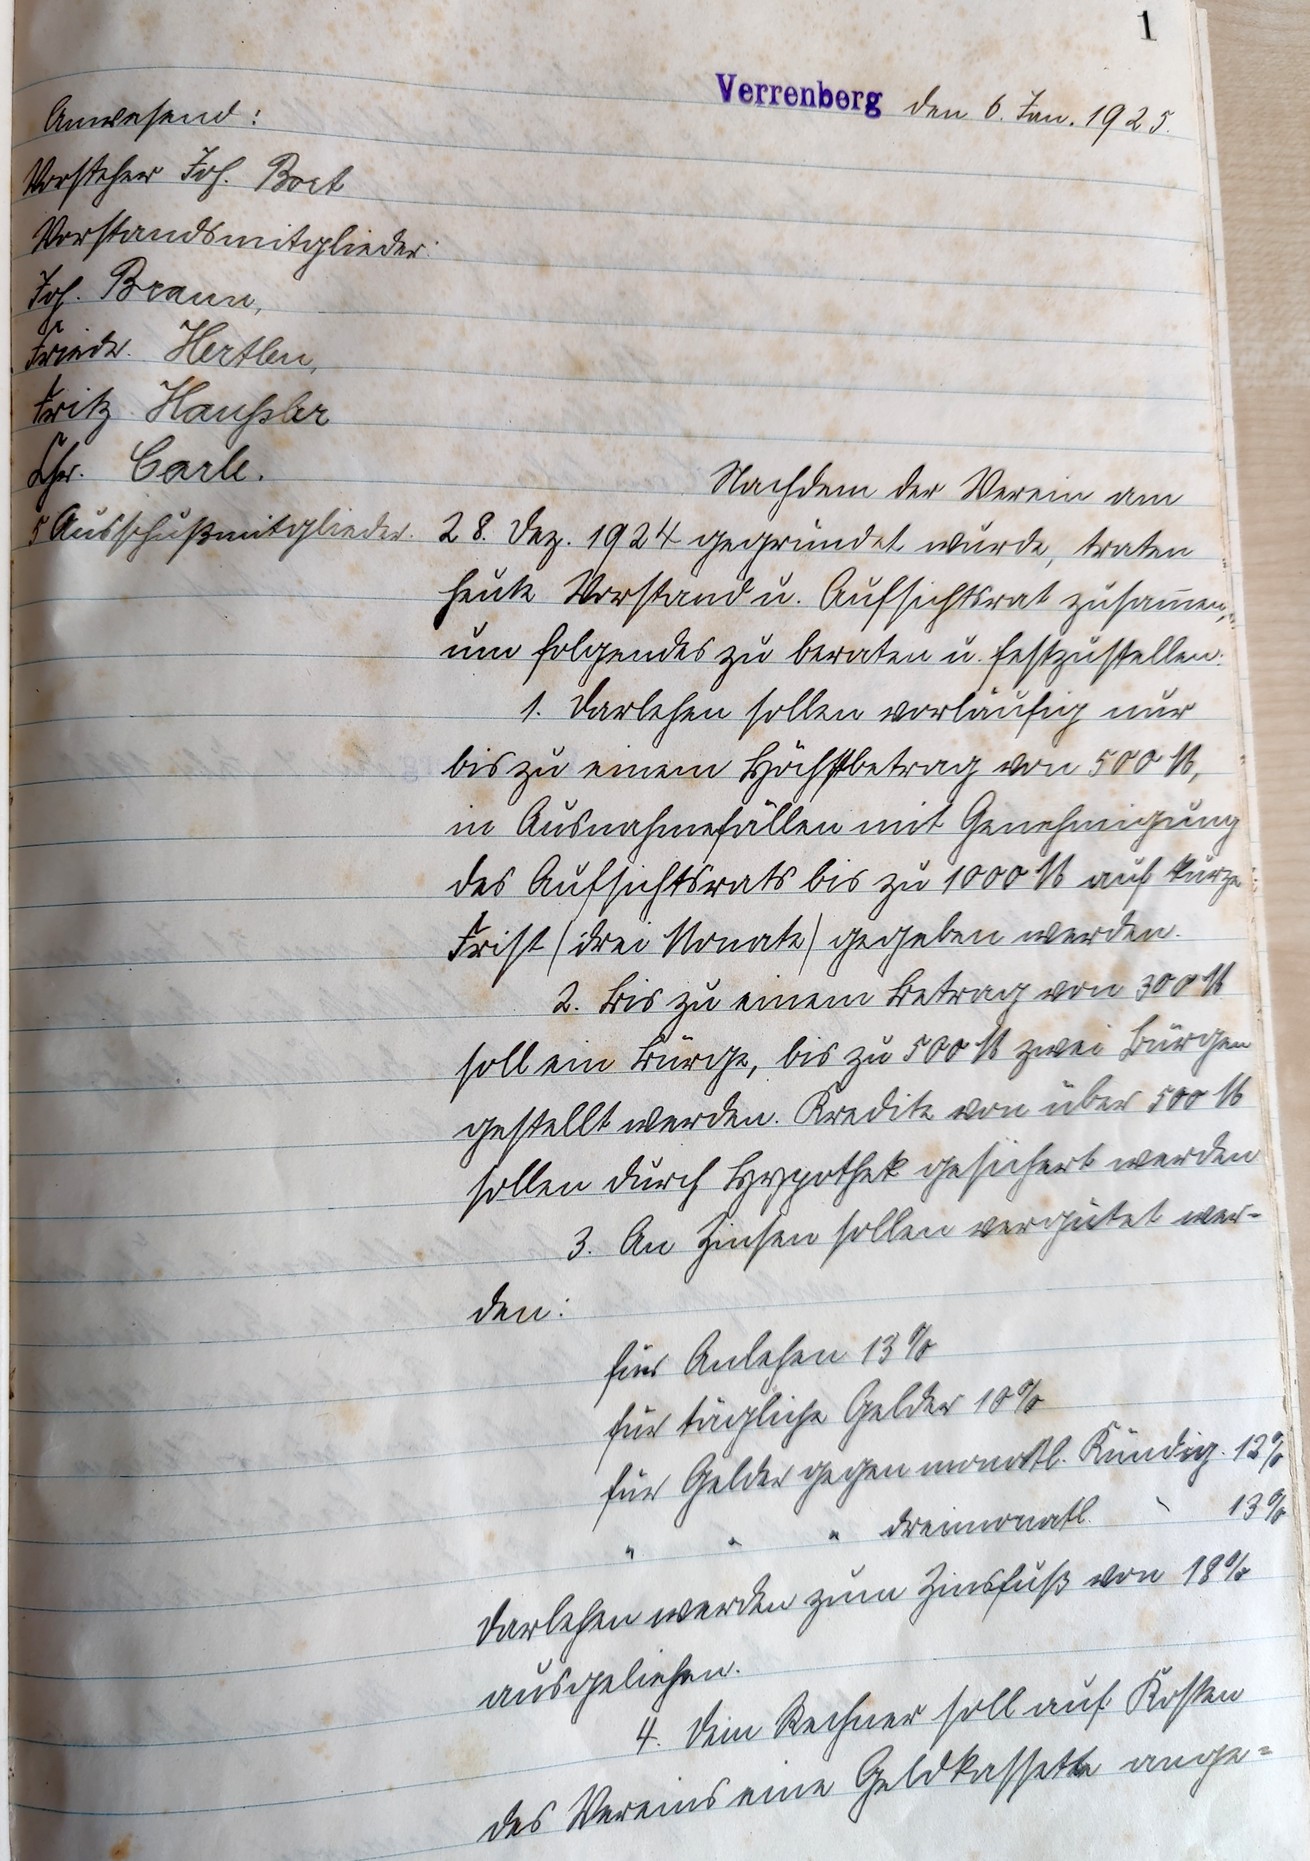 1
Verrenberg den 6. Jan. 1925.
Anwesend:
Vorsteher Joh. Bort
Vorstandsmitglieder:
Joh. Braun,
Friedr. Hertlen,
Fritz Haußler
Chr. Carle.
5 Ausschußmitglieder.
Nachdem der Verein am
28. Dez. 1924 gegründet wurde, traten
heute Vorstand u. Aufsichtsrat zusam̅en,
um folgendes zu beraten u. festzustellen:
1. Darlehen sollen vorläufig nur
bis zu einem Höchstbetrag von 500 M,
in Ausnahmefällen mit Genehmigung
des Aufsichtsrats bis zu 1000 M auf kurze
Frist (drei Monate) gegeben werden.
2. Bis zu einem Betrag von 300 M
soll ein Bürge, bis zu 500 M zwei Bürgen
gestellt werden. Kredite von über 500 M
sollen durch Hypothek gesichert werden
3. An Zinsen sollen vergütet wer=
den:
für Anlehen 13%
für tägliche Gelder 10%
für Gelder gegen monatl. Kündig. 12%
" " " dreimonatl. " 13%
Darlehen werden zum Zinsfuß von 18%
ausgeliehen.
4. Dem Rechner soll auf Kosten
des Vereins eine Geldkassette ange=